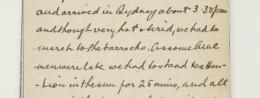 and arrived in Sydney about 3-30pm
and though very hot & tired, we had to
march to the barracks. As some A.M.C
men were late we had to stand to atten-
tion in the sun for 25 mins, and all